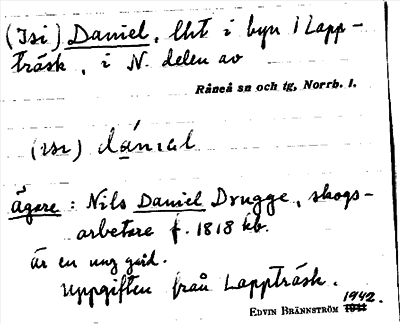 (Isi) Daniel, lht i byn i Lapp-
träsk, i N. delen av
Råneå sn och tg, Norrb. l.
(ısı) dánıal
ägare : Nils Daniel Drugge, skogs-
arbetare f. 1818 kb.
är en ung gård.
Uppgiften från Lappträsk.
1942.
EDVIN BRÄNNSTRÖM